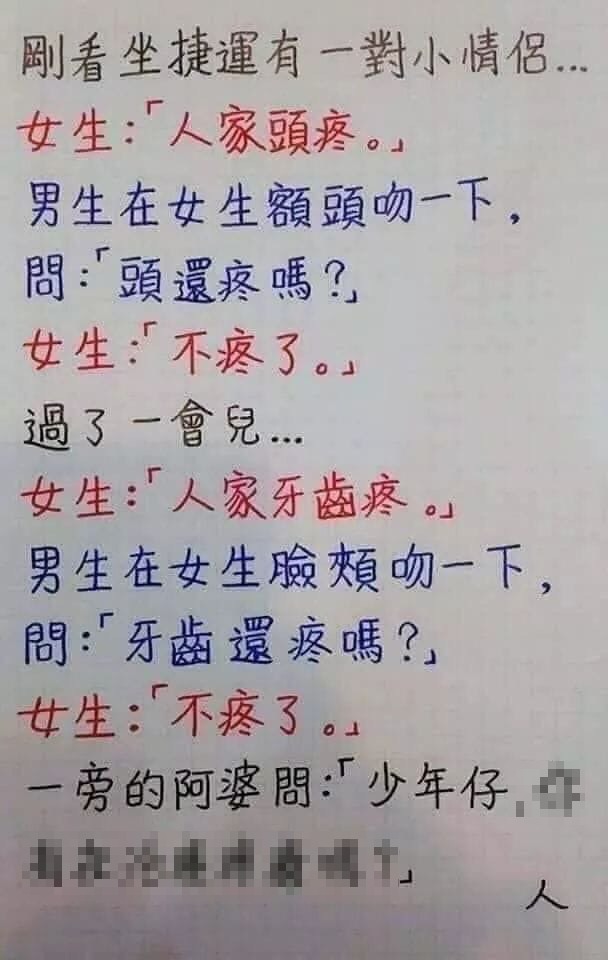 剛看坐捷運有一對小情侶...
女生:「人家頭疼。」
男生在女生額頭吻一下,
問:「頭還疼嗎?」
女生:「不疼了。」
過了一會兒...
女生:「人家牙齒疼。」
男生在女生臉頰吻一下,
問:「牙齒還疼嗎?」
女生:「不疼了。」
一旁的阿婆問:「少年仔,
」
人